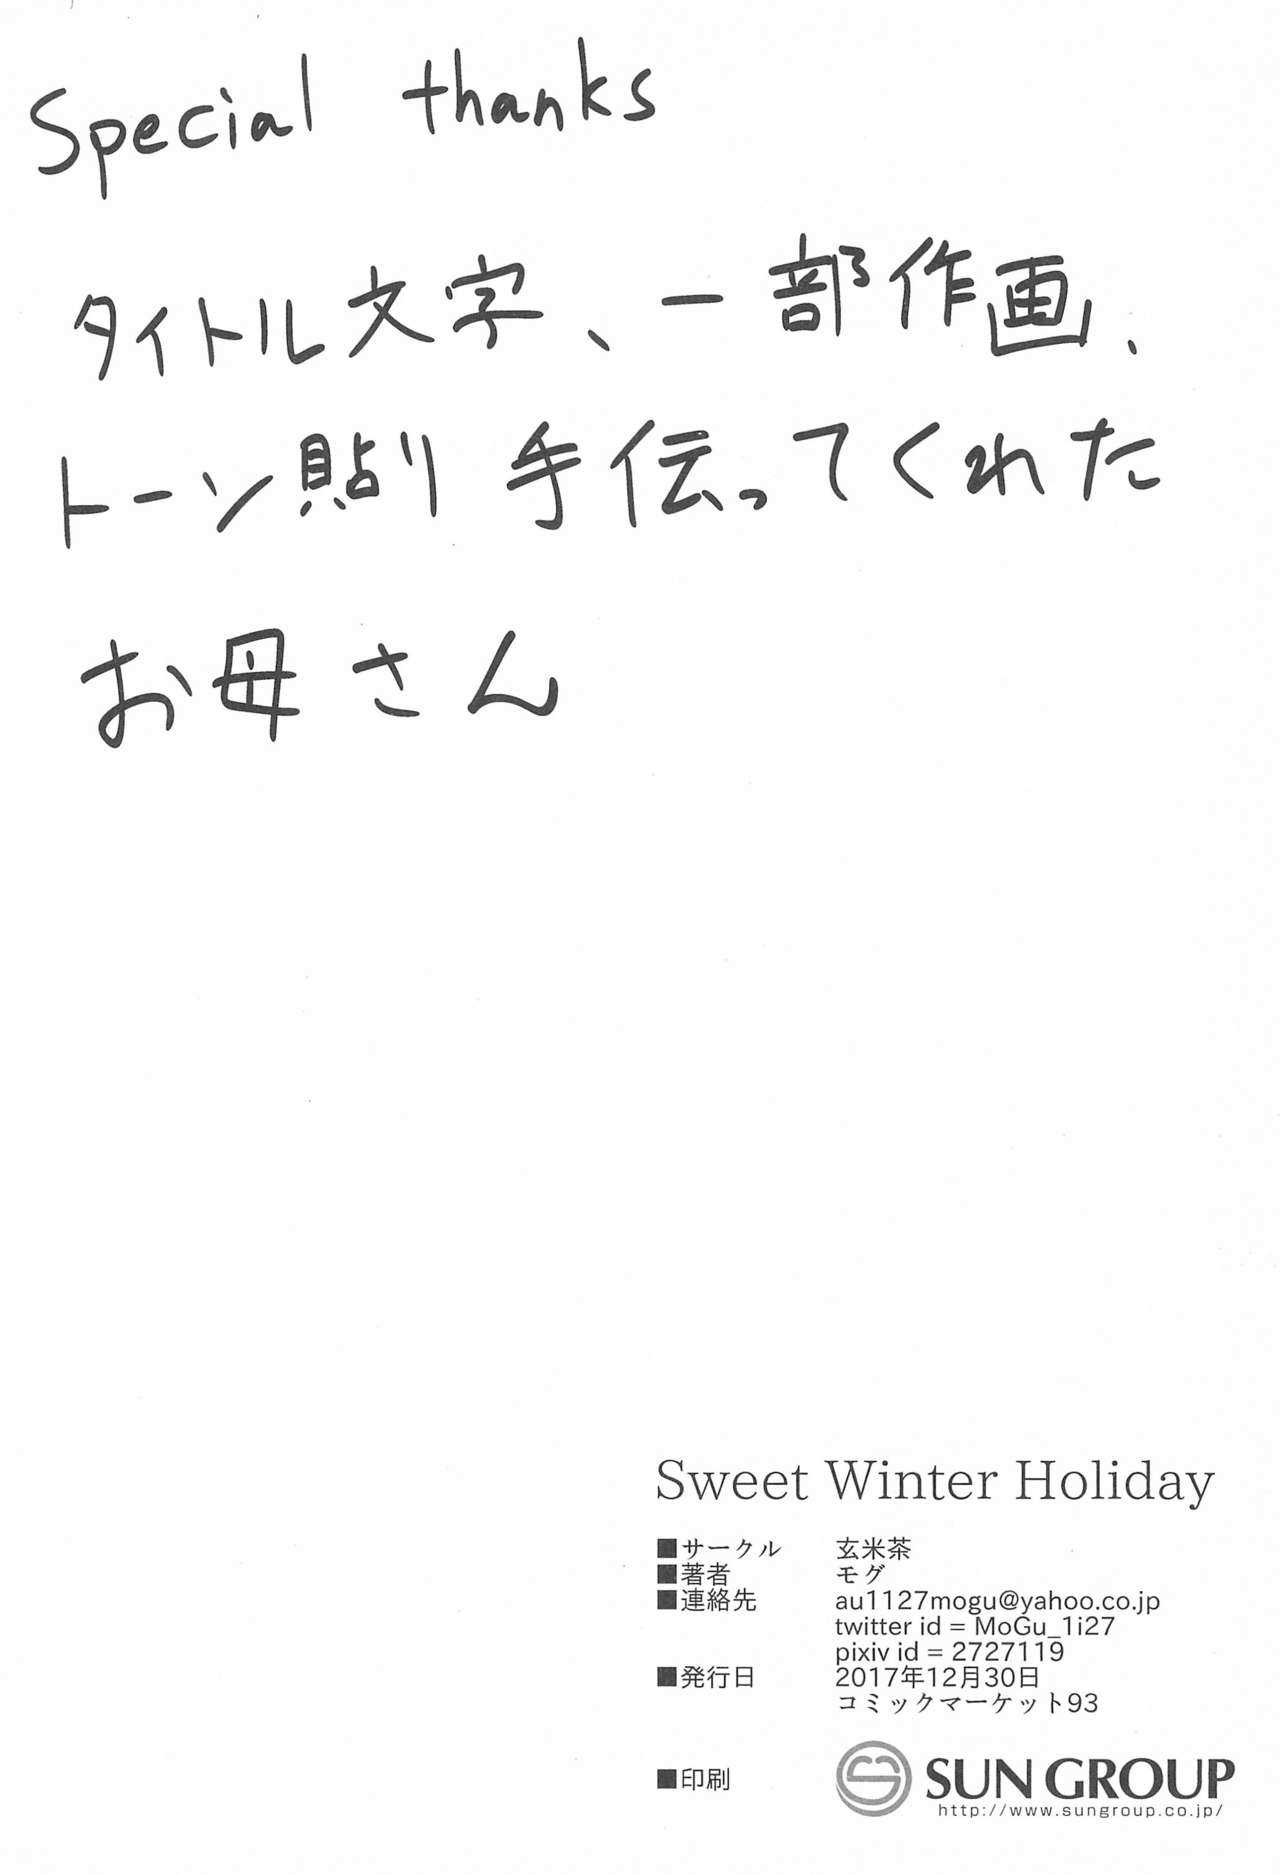 Special thanks
タイトル文字、一部作画、
トーン貼り手伝ってくれた
お母さん
Sweet Winter Holiday
■サークル 玄米茶
■著者 モグ
■連絡先 au1127mogu@yahoo.co.jp
twitter id = MoGu_1i27
pixiv id = 2727119
■発行日 2017年12月30日
コミックマーケット93
■印刷 SUN GROUP
http://www.sungroup.co.jp/